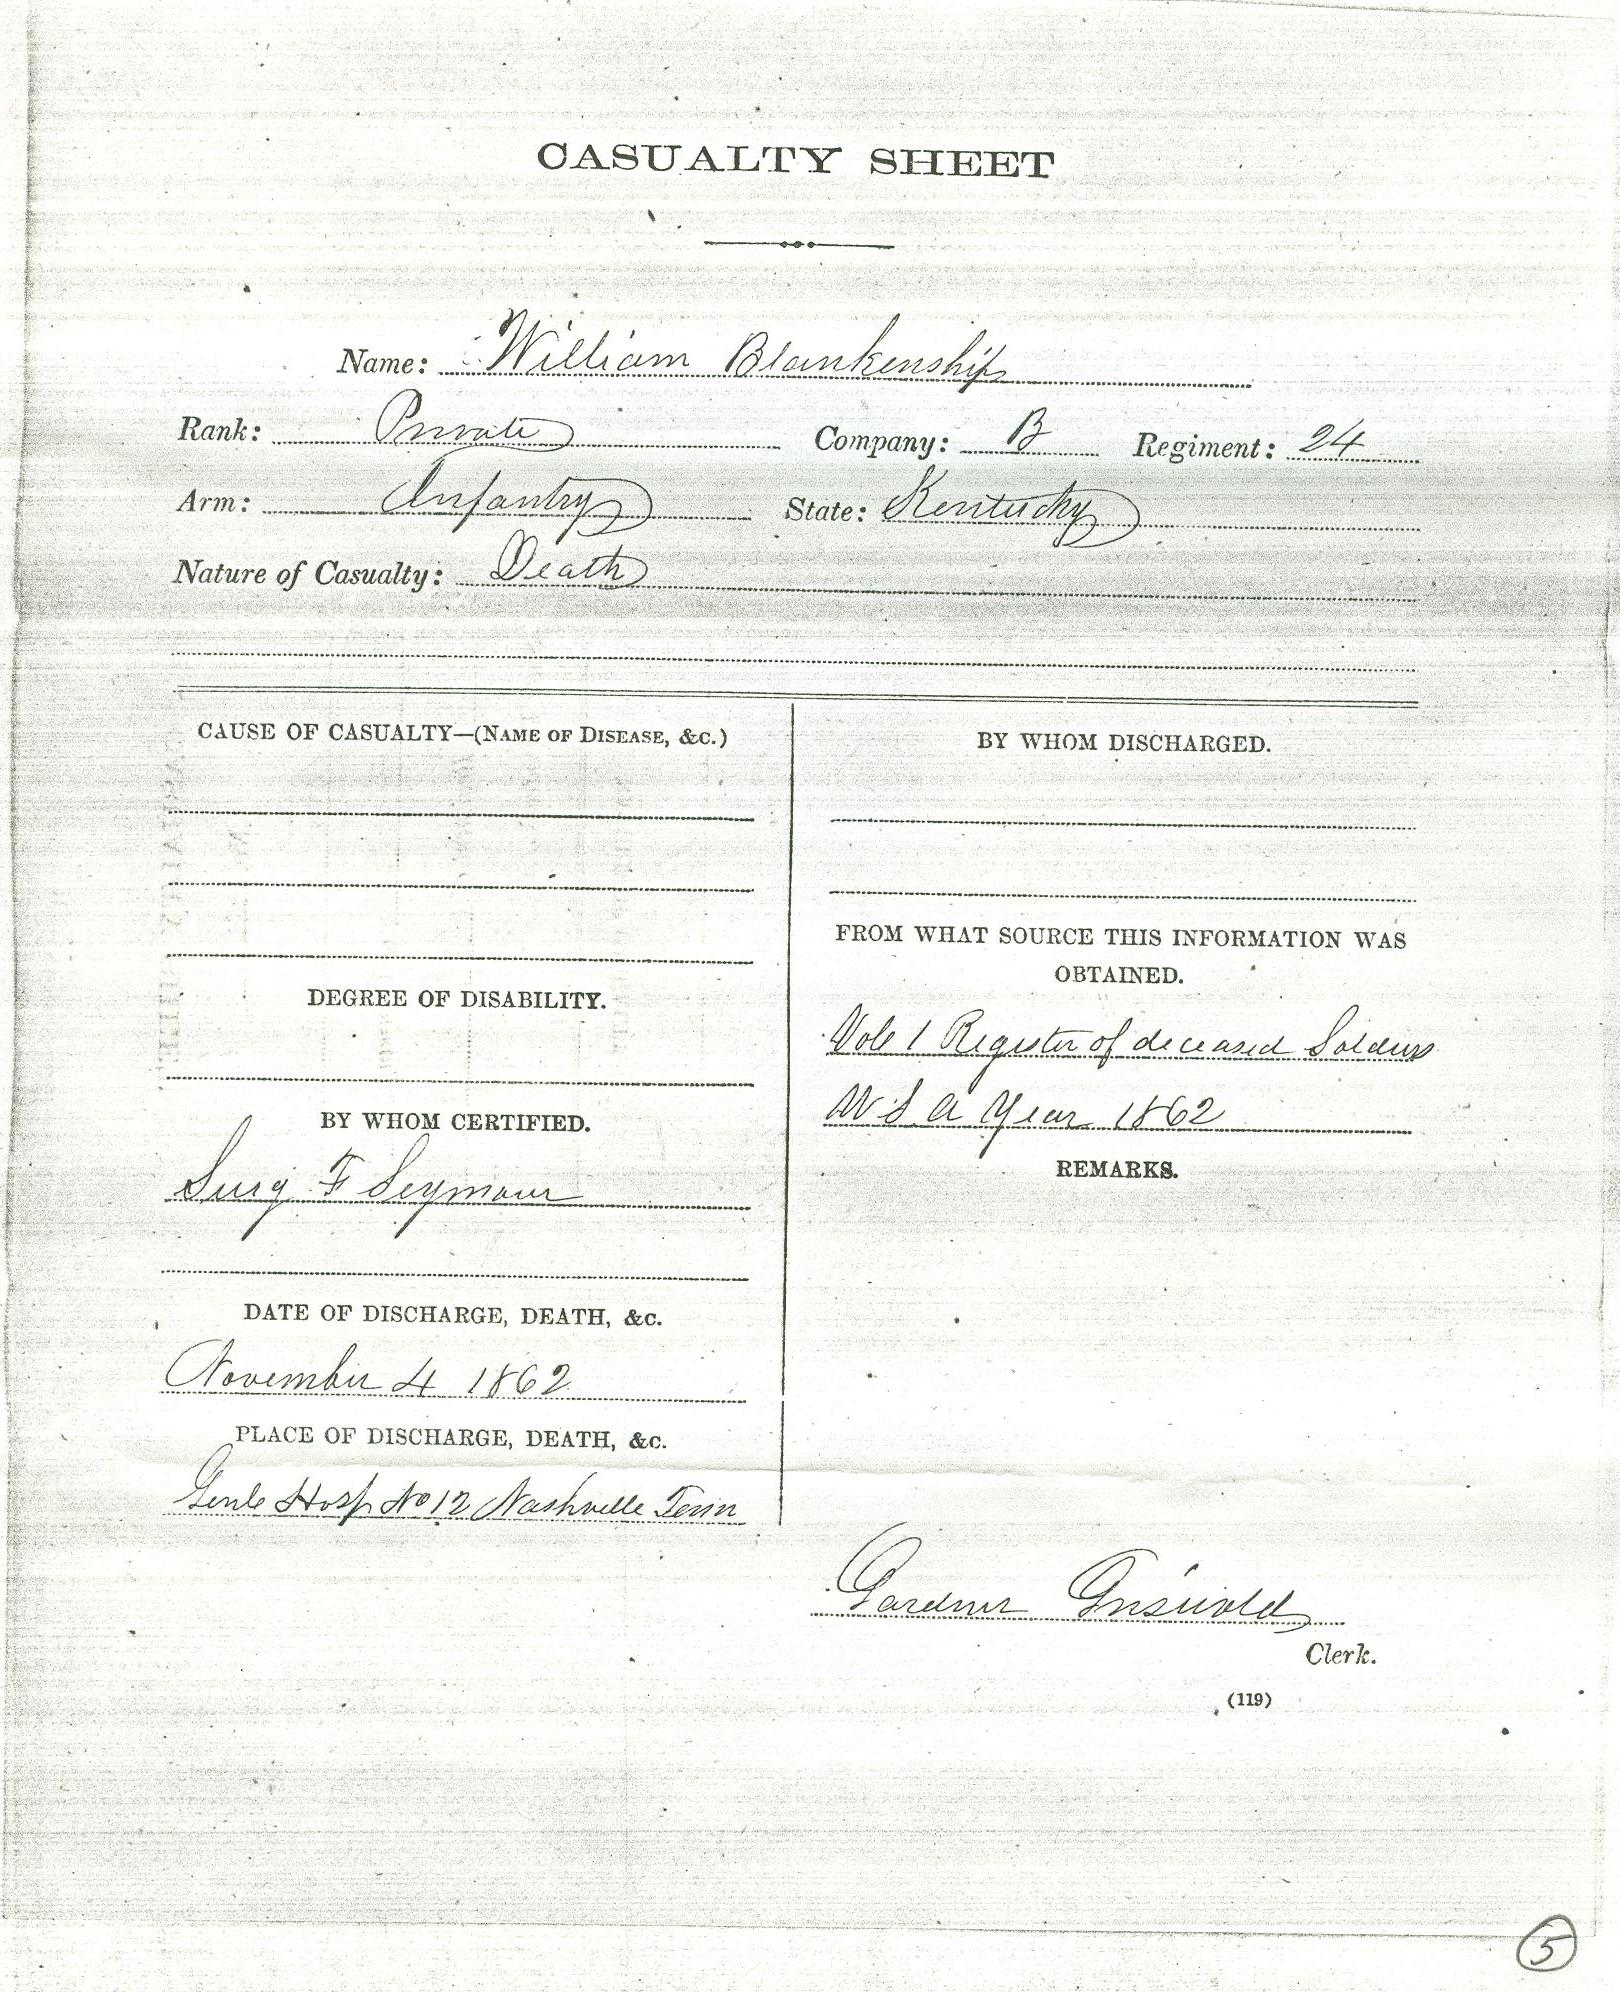 CASUALTY SHEET
Name: William Blankenship
Rank: Private Company: B Regiment: 24
Arm: Infantry State: Kentucky
Nature of Casualty: Death
CAUSE OF CASUALTY—(NAME OF DISEASE, &c.)
DEGREE OF DISABILITY.
BY WHOM CERTIFIED.
Surg F Seymour
DATE OF DISCHARGE, DEATH, &c.
November 4 1862
PLACE OF DISCHARGE, DEATH, &c.
Genl Hosp No 12 Nashville Tenn
BY WHOM DISCHARGED.
FROM WHAT SOURCE THIS INFORMATION WAS
OBTAINED.
Vol 1 Register of deceased Soldiers
A Year 1862
REMARKS.
Gardner Griswold
Clerk.
(119)
5